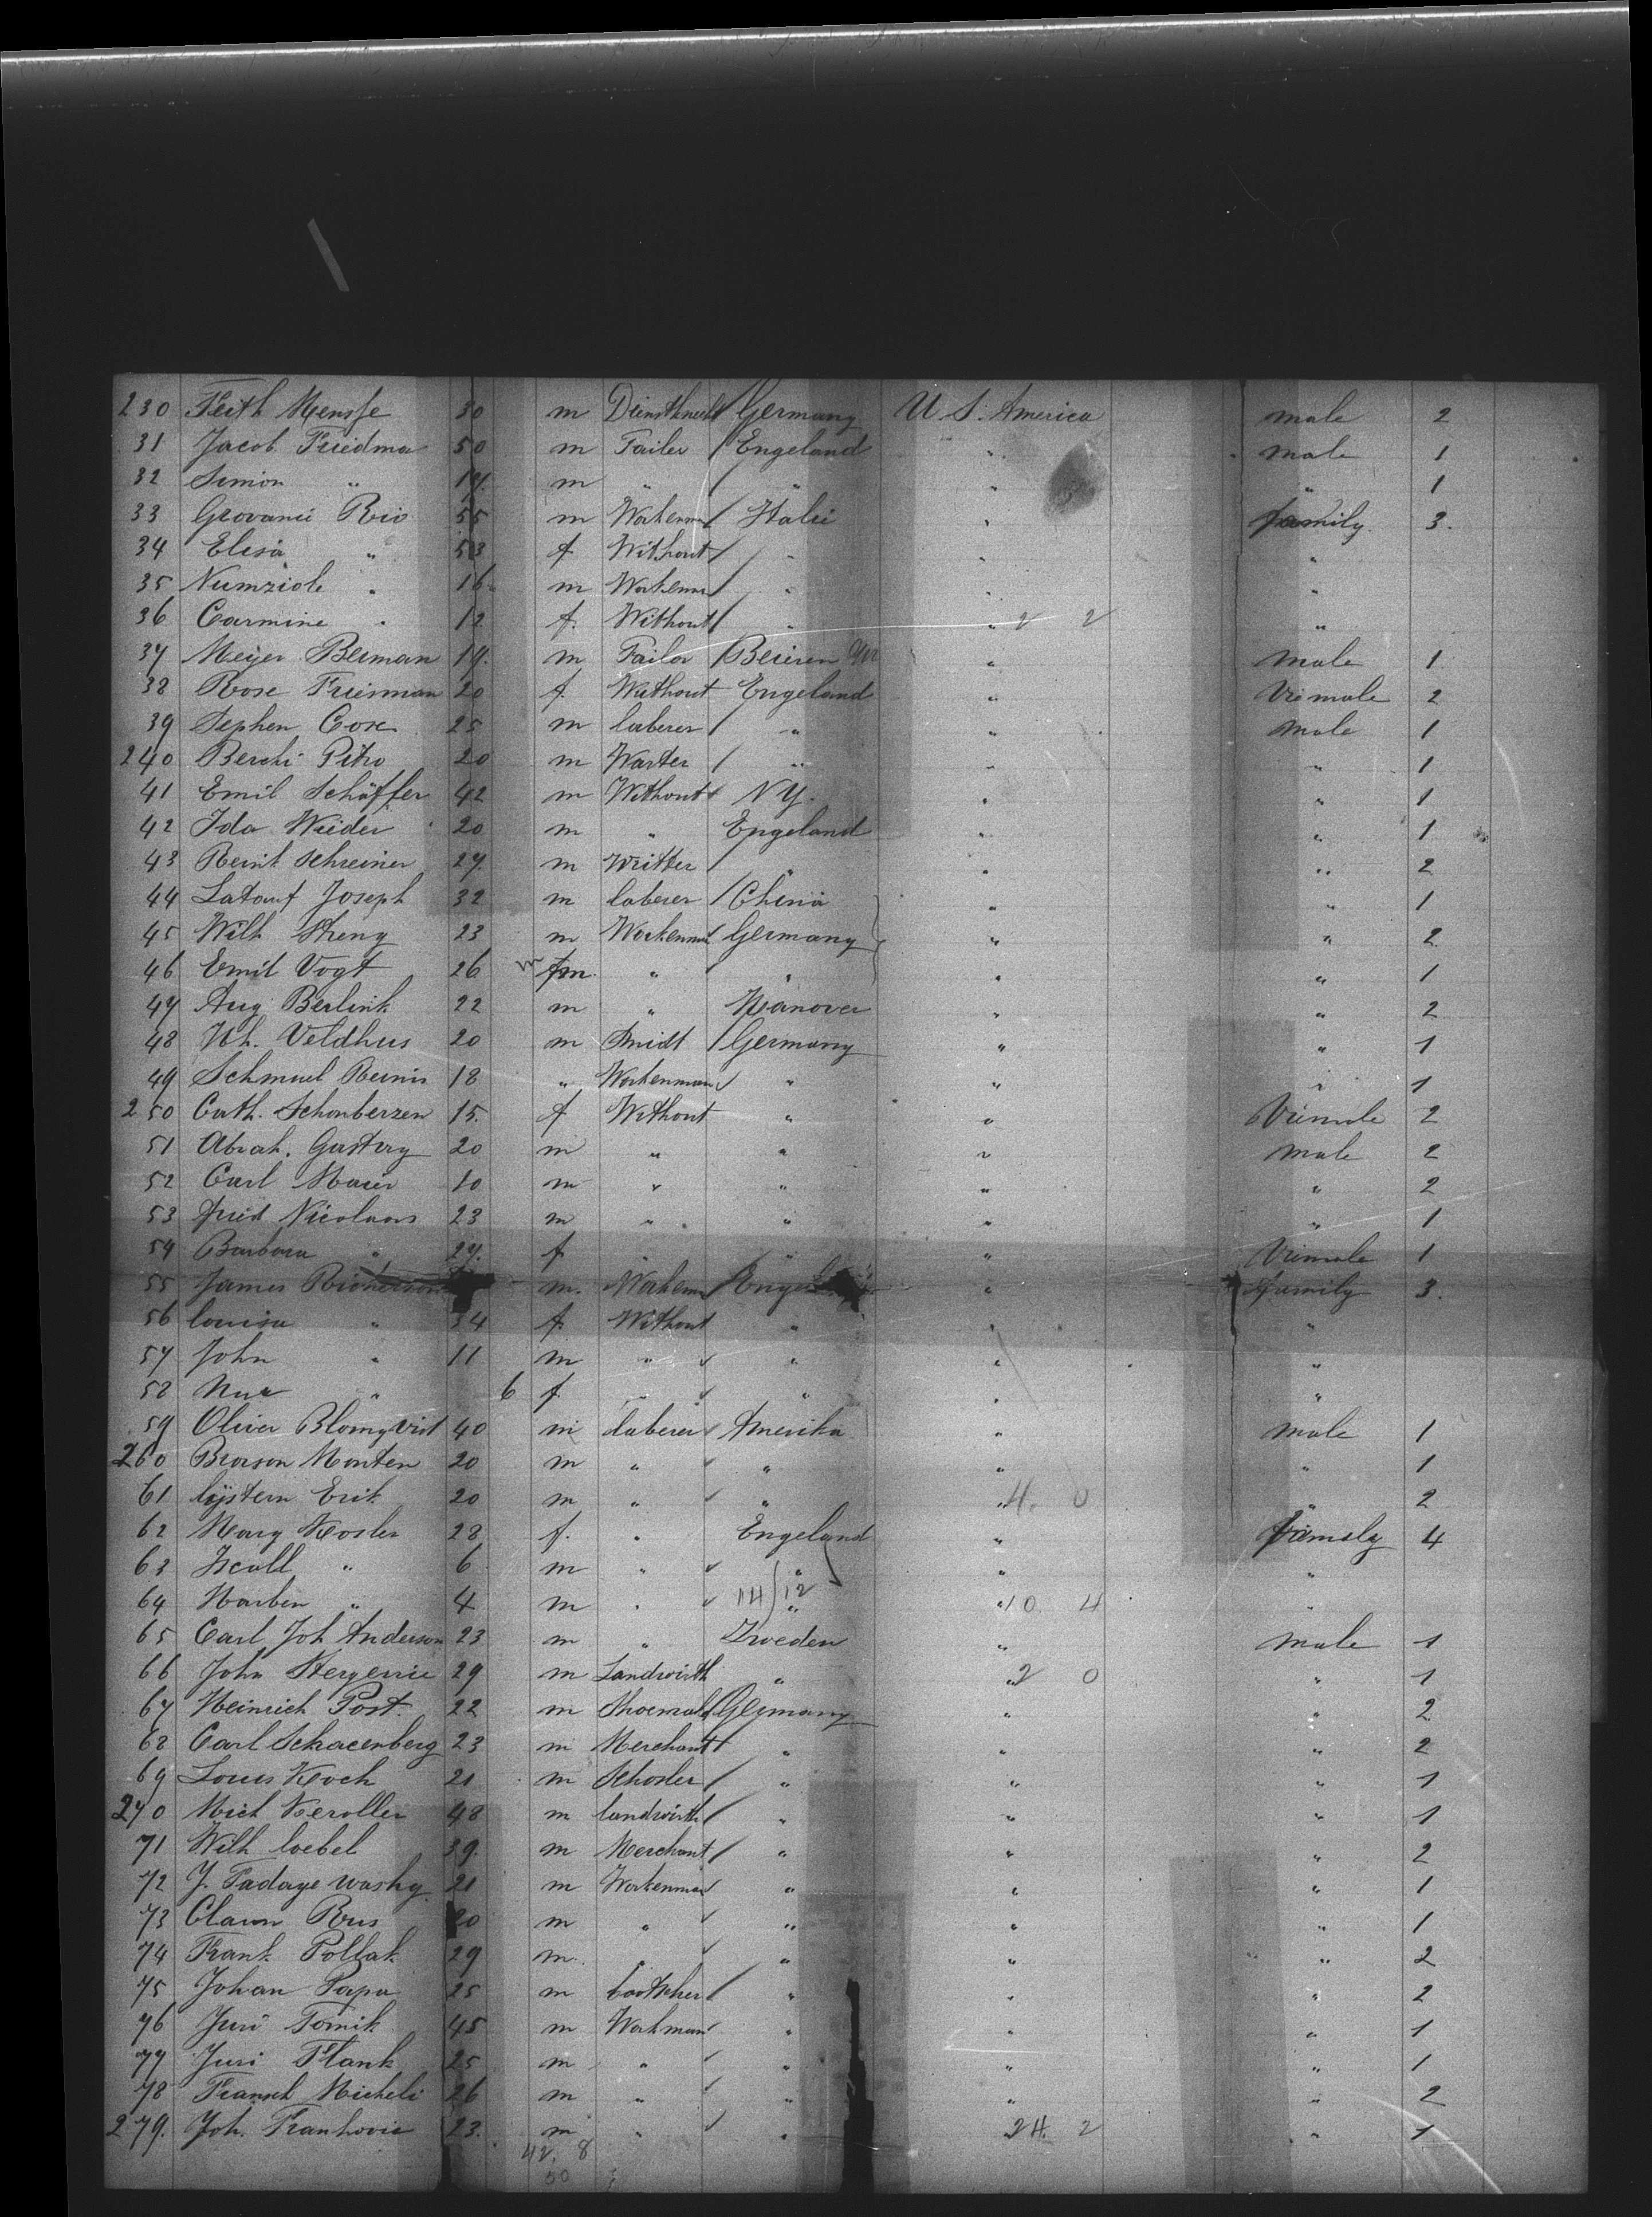 230 Feith Mensse 30 m Dienstknecht Germany U.S. America male 2
31 Jacob Friedma 50 m Tailer Engeland " male 1
32 Simon " 19. m " " " " 1
33 Geovanii Rio 55 m Workenm Italii " family. 3.
34 Elisa " 53 f Without " " "
35 Numziole " 16 m Workenm " " "
36 Carmine " 12 f. Without " " 2 2 "
37 Meijer Berman 19. m Tailor " male 1
38 Rose Frierman 20 f. Without Engeland " Vimale 2
39 Sephen Cox 25 m laberer " " male 1
240 Berchi Pitro 20 m Warter " " " 1
41 Emil Schäffer 42 m Without N.Y. " " 1
42 Ida Wieder 20 m " Engeland " " 1
43 Berint Schreiner 27. m Writter " " " 2
44 Latouf Joseph 32 m laberer China " " 1
45 Wilh Streng 23 m Workenm Germany " " 2
46 Emil Vogt 26 m fm. " " " " 1
47 Aug Berlink 22 m " Hanover " " 2
48 Wh. Veldhus 20 m Smidt Germany " " 1
49 Schmuel Reinis 18 " Workenman " " " 1
250 Cath. Schonberzen 15. f Without " " Vimale 2
51 Abrah. Gusterg 20 m " " " male 2
52 Carl Maier 10 m " " " " 2
53 fried Nicolaas 23 m " " " " 1
54 Barbara " 27. f " " " Vimale 1
55 James Richerson m. Workenm Engeland " family 3.
56 louisa " 34 f. Without " " "
57 John " 11 m " " " "
58 " 6 f. " " " "
59 Oliver Blomqvist 40 m laberer Amerika " male 1
260 Brorson Monten 20 m " " " " 1
61 lijstern Erik 20 m " " " 4. 0 " 2
62 Mary Kosler 28 f. " Engeland " famely 4
63 Iscall " 6 m " " " "
64 Harben " 4 m " 14 12 " " 10 4 "
65 Carl Joh Anderson 23 m " Zweden " male 1
66 John Stergerrie 29 m Landwirth " " 2 0 " 1
67 Heinrich Post. 22 m Shoemak Germany " " 2
68 Carl Schacenberg 23 m Merchant " " " 2
69 Louis Koch 21 m Schosler " " " 1
270 Mich Keroller 48 m landwirth " " " 1
71 Wilh loebel 39. m Merchant " " " 2
72 J. Fadaye washy 21 m Workenman " " " 1
73 Clawn Rus 20 m " " " " 1
74 Frank Pollak 29 m. " " " 2
75 Johan Papa 25 m bootscher " " " 2
76 Juri Tomik 45 m Workman " " " 1
77 Juri Flank 25 m " " " " 1
78 Fransch Micheli 26 m " " " " 2
279. Joh. Frankovic 23. m " " " 24. 2 " 1
42. 8
50